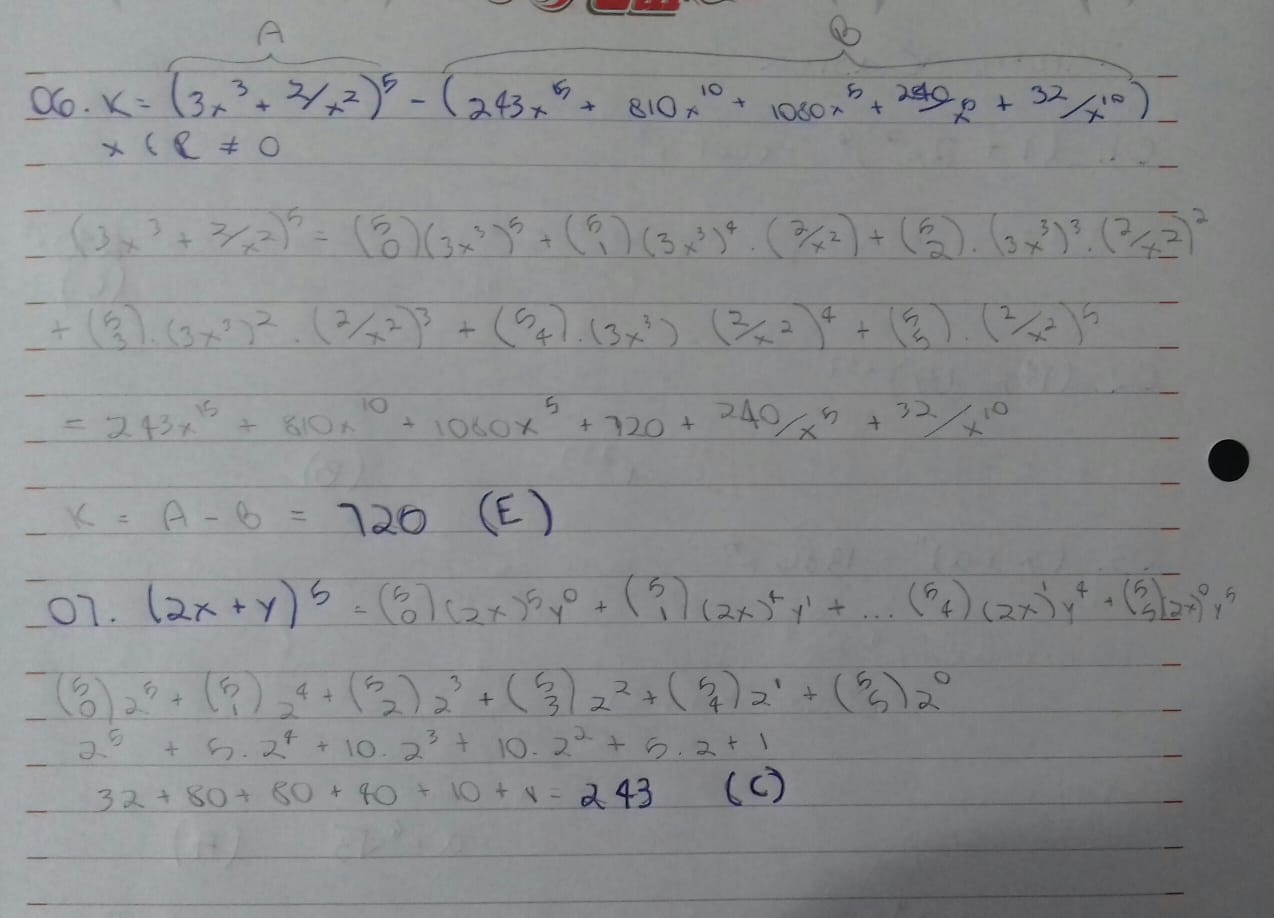 A B
06. K = (3x³ + 2/x²)⁵ - (243x¹⁵ + 810x¹⁰ + 1080x⁵ + 240/x⁵ + 32/x¹⁰)
x ( R ≠ 0
(3x³ + 2/x²)⁵ = (5 0)(3x³)⁵ + (5 1)(3x³)⁴ · (2/x²) + (5 2) · (3x³)³ · (2/x²)²
+ (5 3) · (3x³)² · (2/x²)³ + (5 4) · (3x³) (2/x²)⁴ + (5 5) · (2/x²)⁵
= 243x¹⁵ + 810x¹⁰ + 1080x⁵ + 720 + 240/x⁵ + 32/x¹⁰
K = A - B = 720 (E)
07. (2x + y)⁵ = (5 0)(2x)⁵y⁰ + (5 1)(2x)⁴y¹ + ... (5 4)(2x)¹y⁴ + (5 5)(2x)⁰y⁵
(5 0)2⁵ + (5 1)2⁴ + (5 2)2³ + (5 3)2² + (5 4)2¹ + (5 5)2⁰
2⁵ + 5·2⁴ + 10·2³ + 10·2² + 5·2 + 1
32 + 80 + 80 + 40 + 10 + 1 = 243 (C)